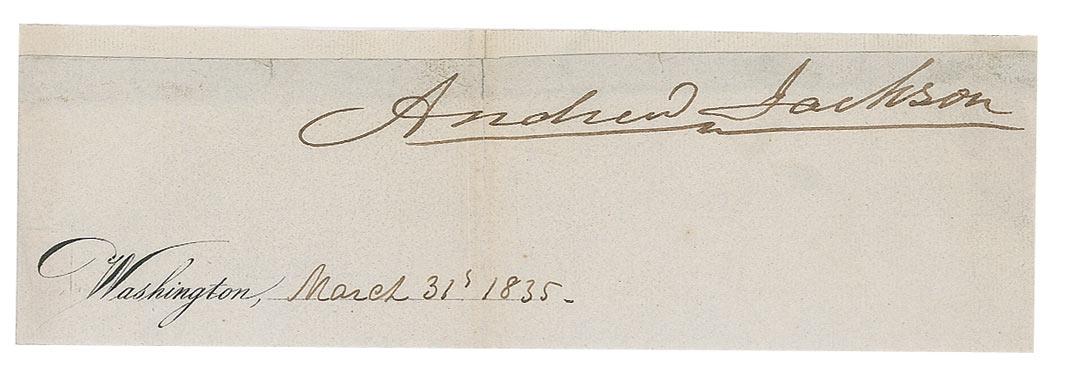 Andrew Jackson
Washington, March 31s 1835.